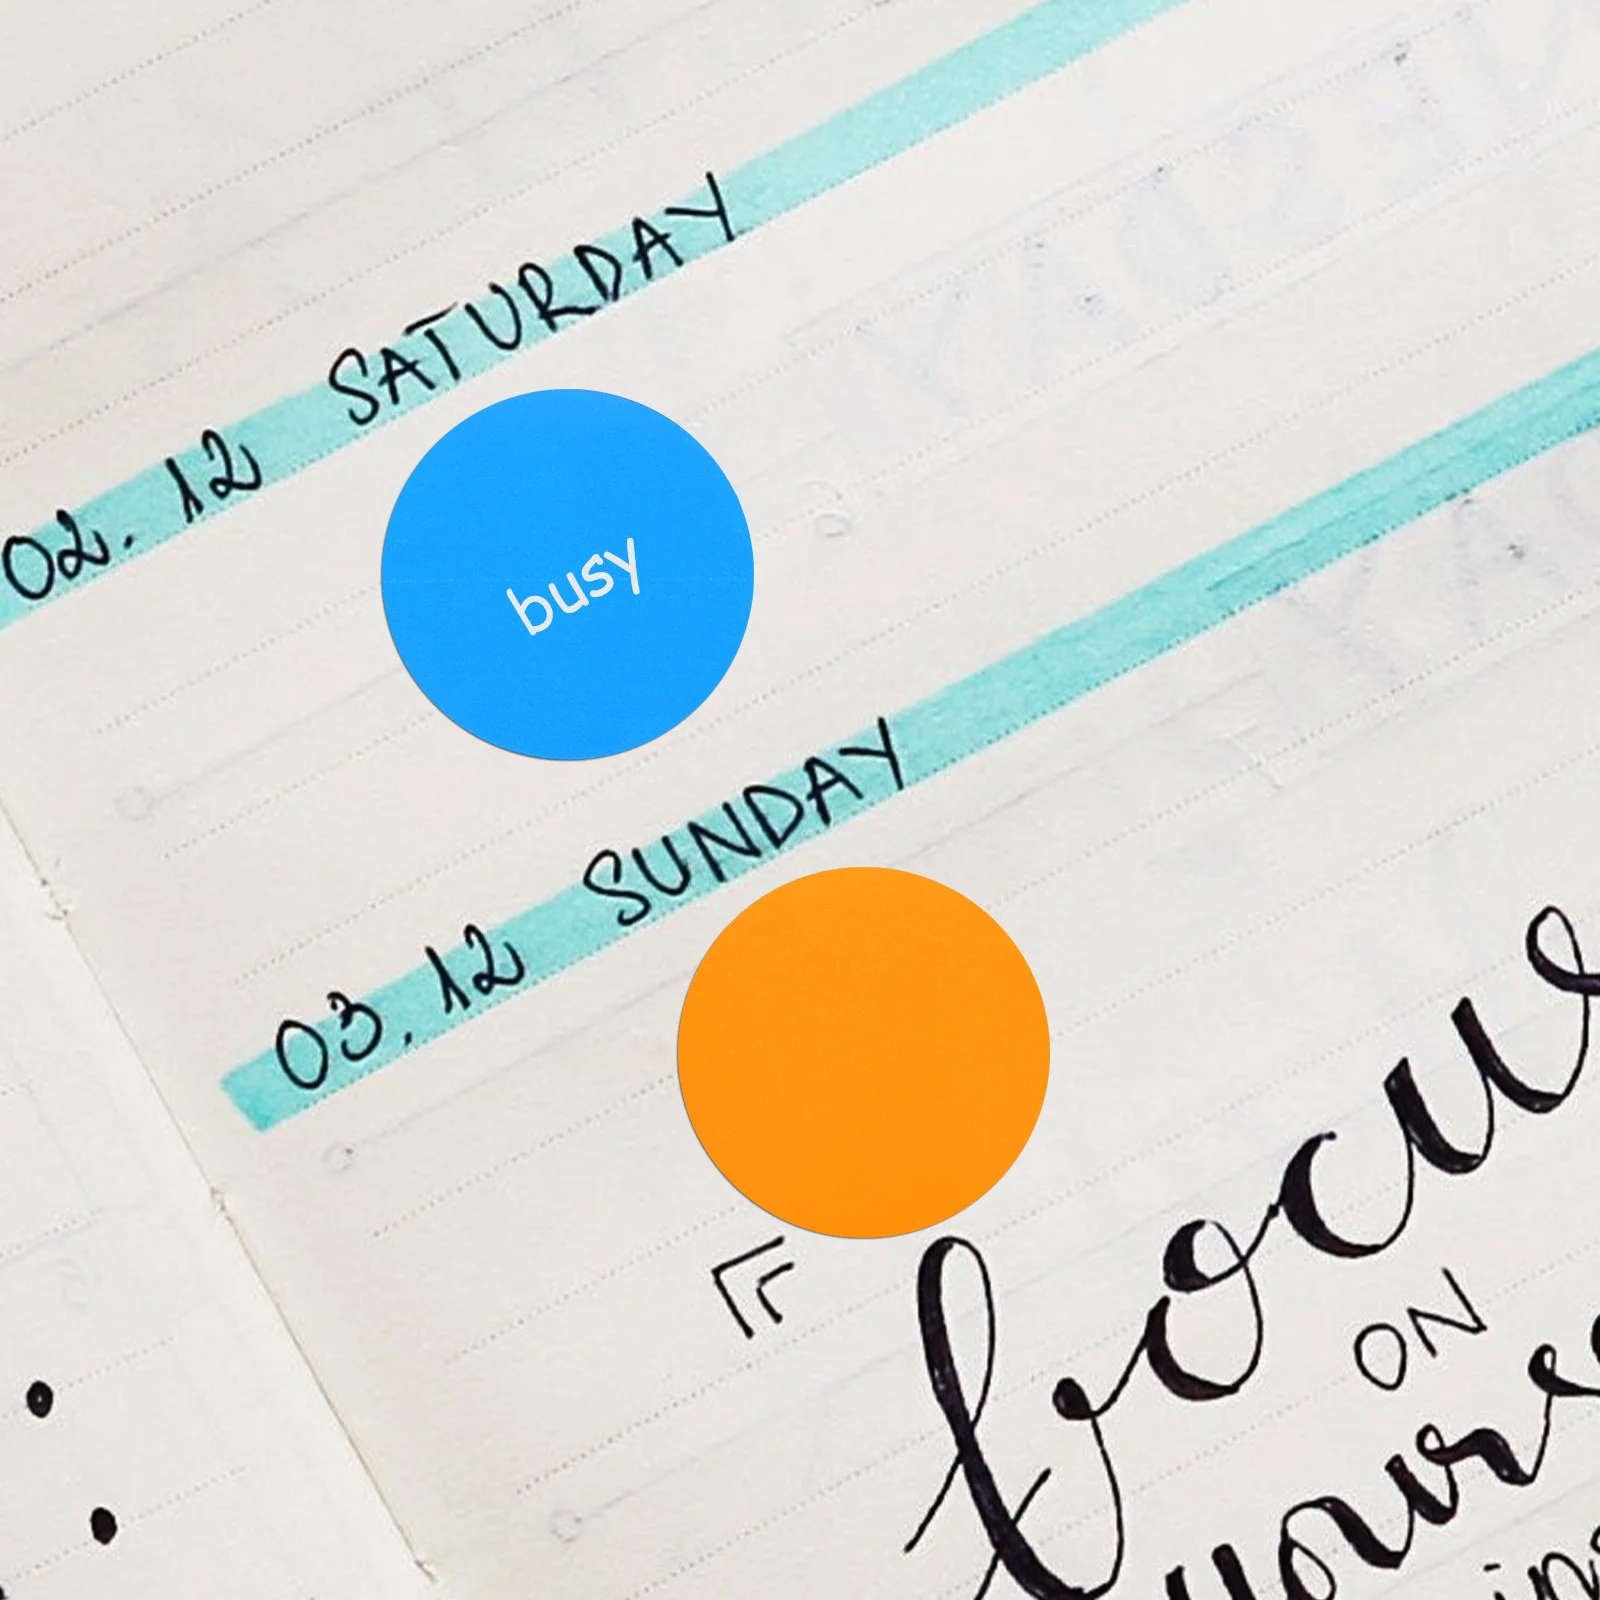 02. 12 SATURDAY
busy
03. 12 SUNDAY
focus
ON